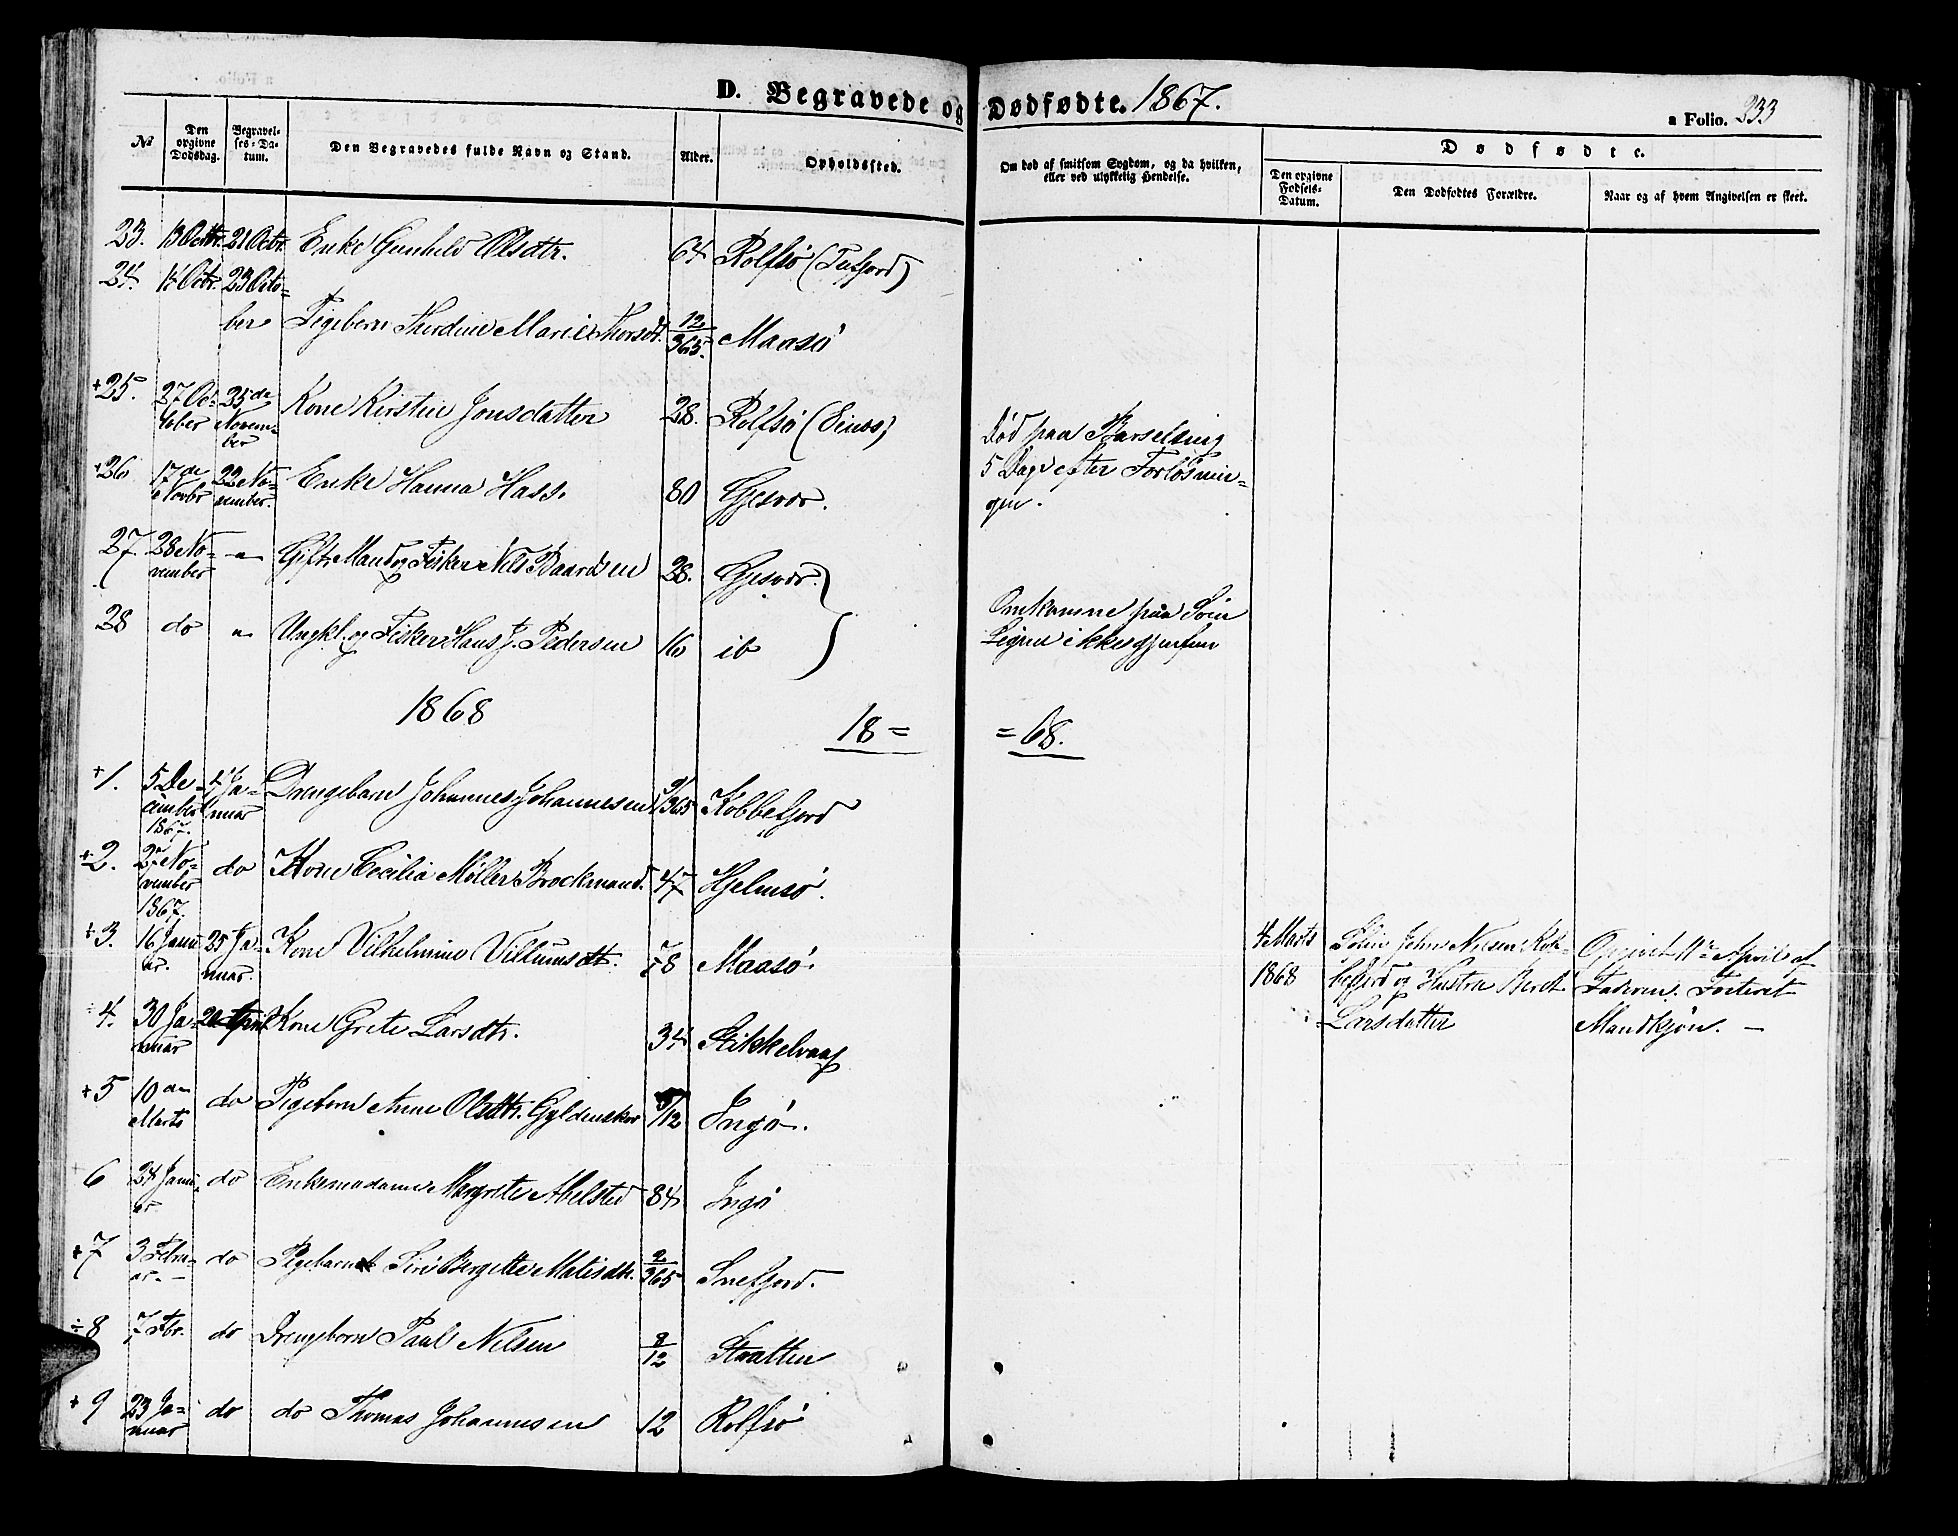 D. Begravede og Dødfødte. 1867.
a Folio. 233
№
Den opgivne Dødsdag.
Begravelses-Datum.
Den Begravedes fulde Navn og Stand.
Alder.
Opholdssted.
Om død af smitsom Sygdom, og da hvilken, eller ved ulykkelig Hendelse.
Dødfødte.
Den opgivne Fødsels-Datum.
Den Dødfødtes Forældre.
Naar og af hvem Angivelsen er skeet.
23. 13 Octbr. 21 Octbr. Enke Gunhild Olsdtr. 64 Rolfsø (Tufjord)
24. 14 Octbr. 23 Octo=
ber Pigebarn Thordine Marie Thorsdt. 12/365. Maasø
+25. 27 Oc=tober 25de November Kone Kirstin Jonsdatter 28. Rolfsø
Død paa Barselseng
5 Dage efter Forløsnin=
gen.
+26 17de Novbr 22 November. Enke Hanna Hass. 80 Gjesvær.
27. 28 No=vember " Gift Mand og Fisker Nils Baardsen 28. Gjesvær.
28 do " Ungkl. og Fisker Hans J. Pedersen 16 ib
Omkomne paa Søen
Ligene ikke gjenfun
1868
18 = = 68.
+1. 5 December 1867. 4 Ja=nuar Drengebarn Johannes Johannesen /365 Kobbefjord
÷2. 27 No=vember 1867. do Kone Cecilia Møller Brockmand. 47 Hjelmsø.
÷3. 16 Janu=ar. 25 Ja=nuar. Kone Vilhelmine Villumsdtr. 78 Maasø.
4 Marts
1868
John Nilsen Kob=
befjord og Hustru Beret
Larsdatter
Opgivet 11te April af
Faderen. Fosteret
Mandkjøn. —
÷4. 30 Ja=nuar April Kone Grete Larsdtr. 34 Stikkelvaag
+5 10de Marts do Pigebarn Anne Olsdtr. Gyldenskov /12 Ingø.
6 24 Janu=ar. do Enkemadame Margrete Abelsted 84 Ingø
+7 3 Febru=ar. — do Pigebarn Siri Bergette Matisdtr. 2/365 Snefjord.
÷8 7 Fbr. do Drengebarn Paul Nilsen 8/12 Staatten
+9 23 Ja=nuar do do Thomas Johannesen 12 Rolfsø